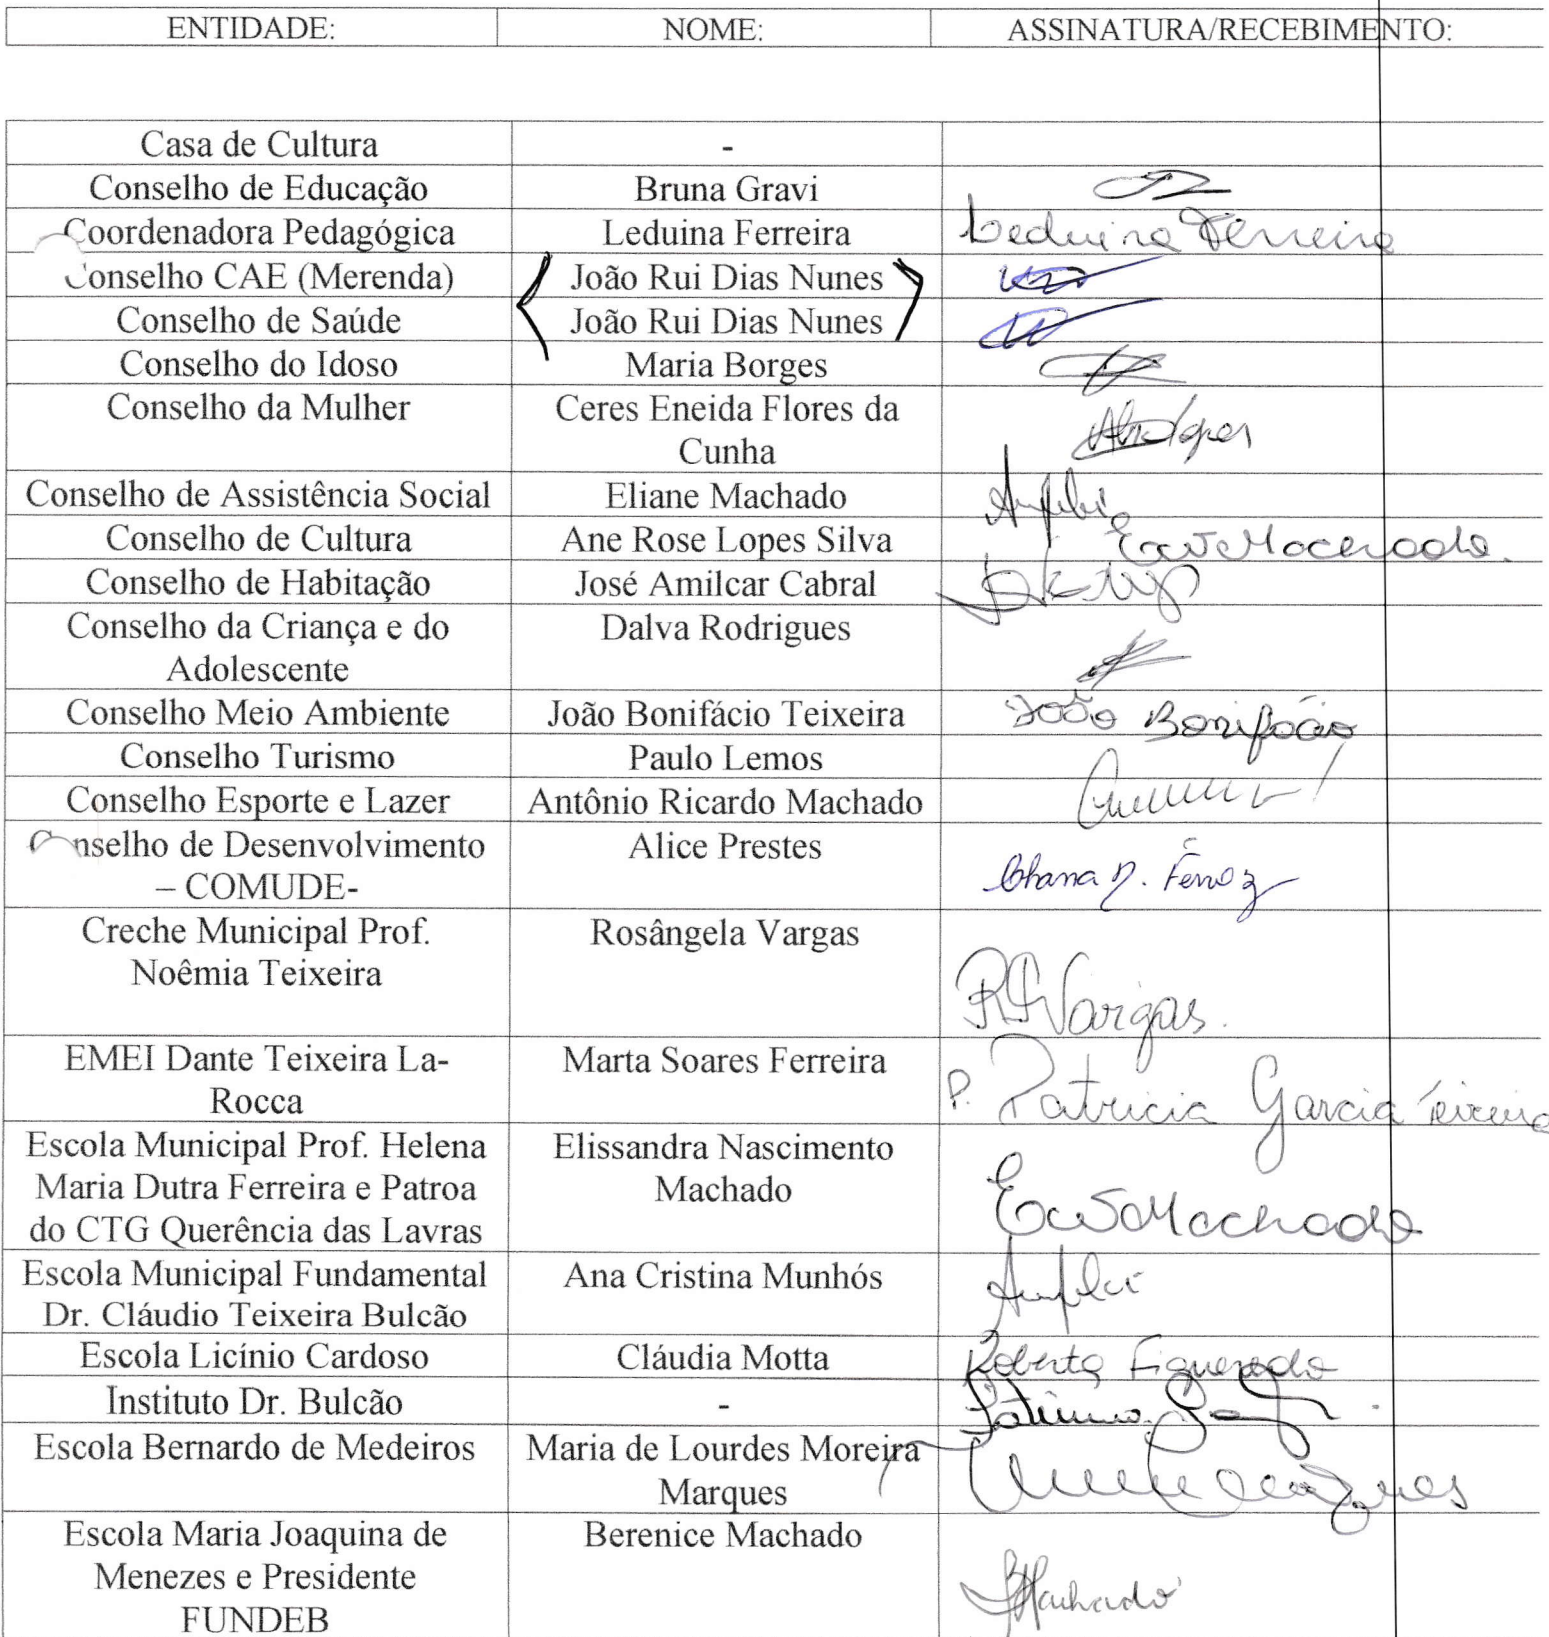 ENTIDADE: NOME: ASSINATURA/RECEBIMENTO:
Casa de Cultura -
Conselho de Educação Bruna Gravi
Coordenadora Pedagógica Leduina Ferreira Leduina Ferreira
Conselho CAE (Merenda) João Rui Dias Nunes
Conselho de Saúde João Rui Dias Nunes
Conselho do Idoso Maria Borges
Conselho da Mulher Ceres Eneida Flores da
Cunha
Conselho de Assistência Social Eliane Machado
Conselho de Cultura Ane Rose Lopes Silva Machado
Conselho de Habitação José Amilcar Cabral
Conselho da Criança e do Dalva Rodrigues
Adolescente
Conselho Meio Ambiente João Bonifácio Teixeira João Bonifácio
Conselho Turismo Paulo Lemos
Conselho Esporte e Lazer Antônio Ricardo Machado
Conselho de Desenvolvimento Alice Prestes
– COMUDE-
Creche Municipal Prof. Rosângela Vargas
Noêmia Teixeira
Vargas.
EMEI Dante Teixeira La- Marta Soares Ferreira
Rocca P. Patricia Garcia Teixeira
Escola Municipal Prof. Helena Elissandra Nascimento
Maria Dutra Ferreira e Patroa Machado
do CTG Querência das Lavras Machado
Escola Municipal Fundamental Ana Cristina Munhós
Dr. Cláudio Teixeira Bulcão
Escola Licínio Cardoso Cláudia Motta Roberta Figueredo
Instituto Dr. Bulcão -
Escola Bernardo de Medeiros Maria de Lourdes Moreira
Marques Marques
Escola Maria Joaquina de Berenice Machado
Menezes e Presidente
FUNDEB BMachado